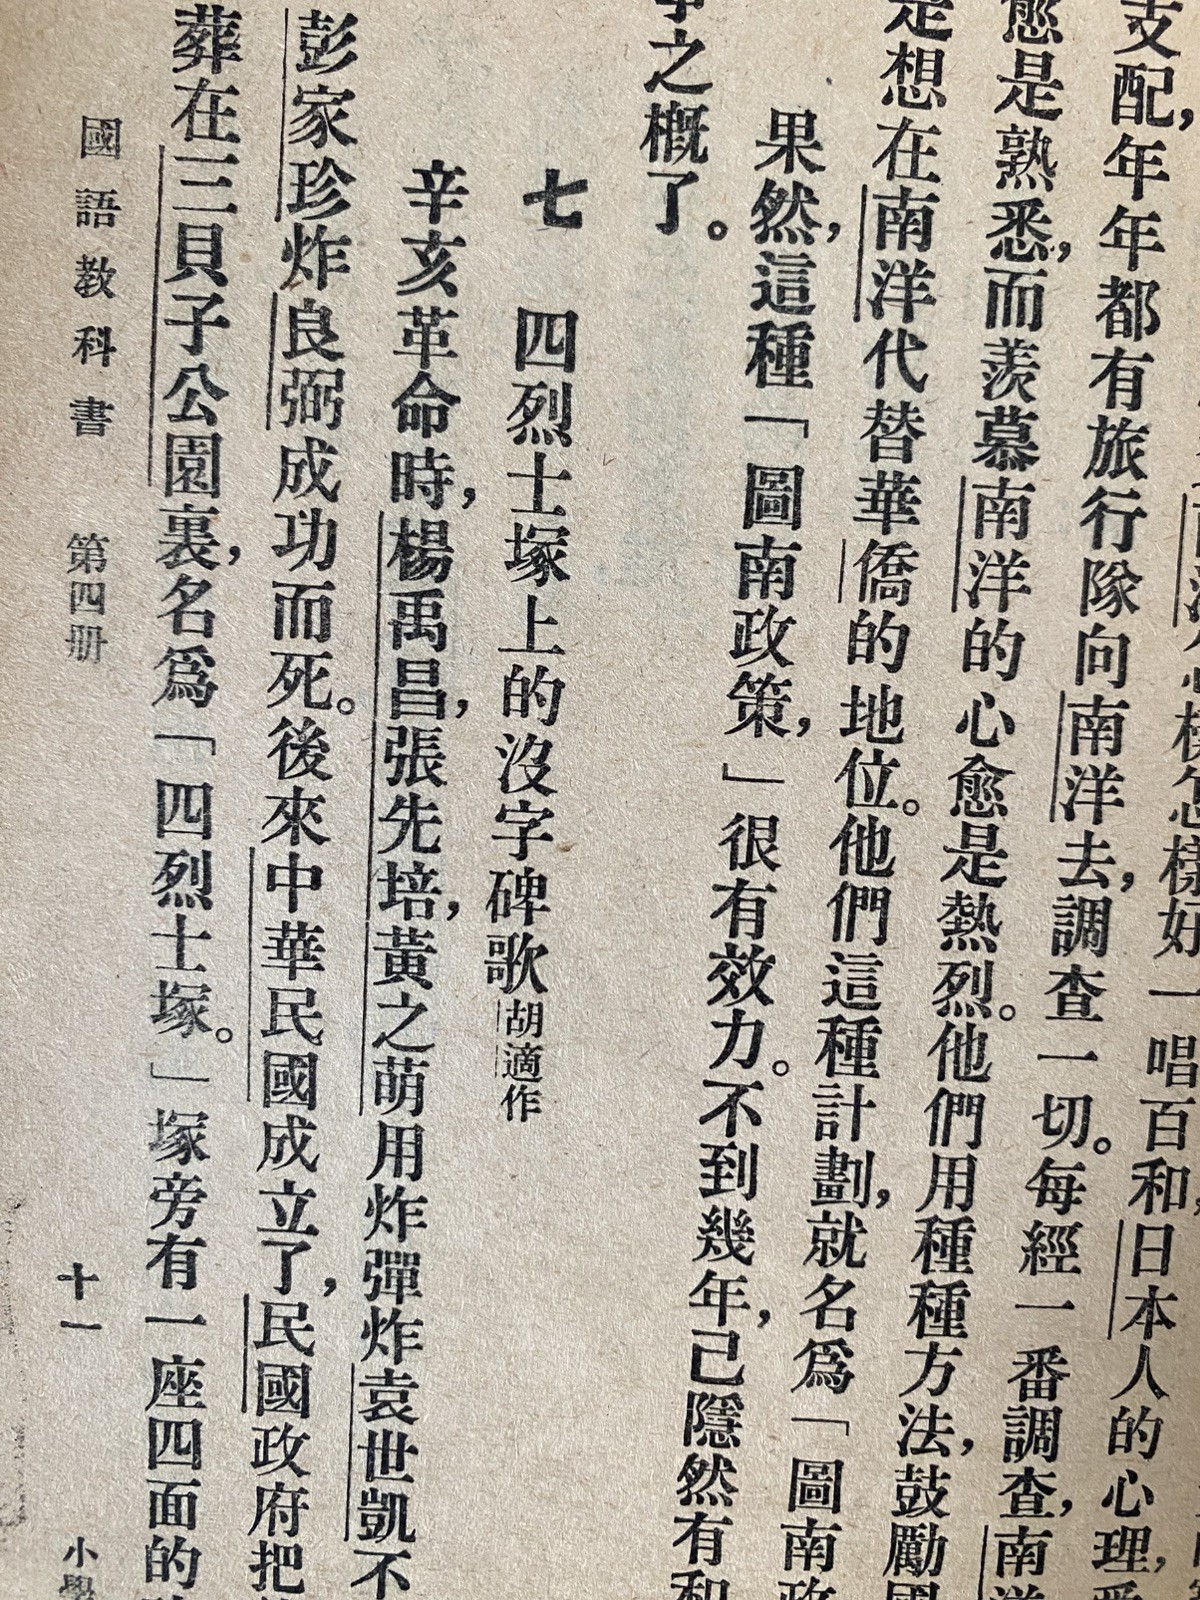 心樣怎樣好一唱百和,日本人的心理,
支配,年年都有旅行隊向南洋去,調查一切。每經一番調查,南洋
愈是熟悉,而羨慕南洋的心愈是熱烈。他們用種種方法,鼓勵國
是想在南洋代替華僑的地位。他們這種計劃,就名爲「圖南政
果然,這種「圖南政策,」很有效力。不到幾年,己隱然有和
之概了。
七 四烈士塚上的沒字碑歌 胡適作
辛亥革命時,楊禹昌,張先培,黃之萌用炸彈炸袁世凱不
彭家珍炸良弼成功而死。後來中華民國成立了,民國政府把
葬在三貝子公園裏,名爲「四烈士塚。」塚旁有一座四面的
國語教科書 第四册 十一 小學